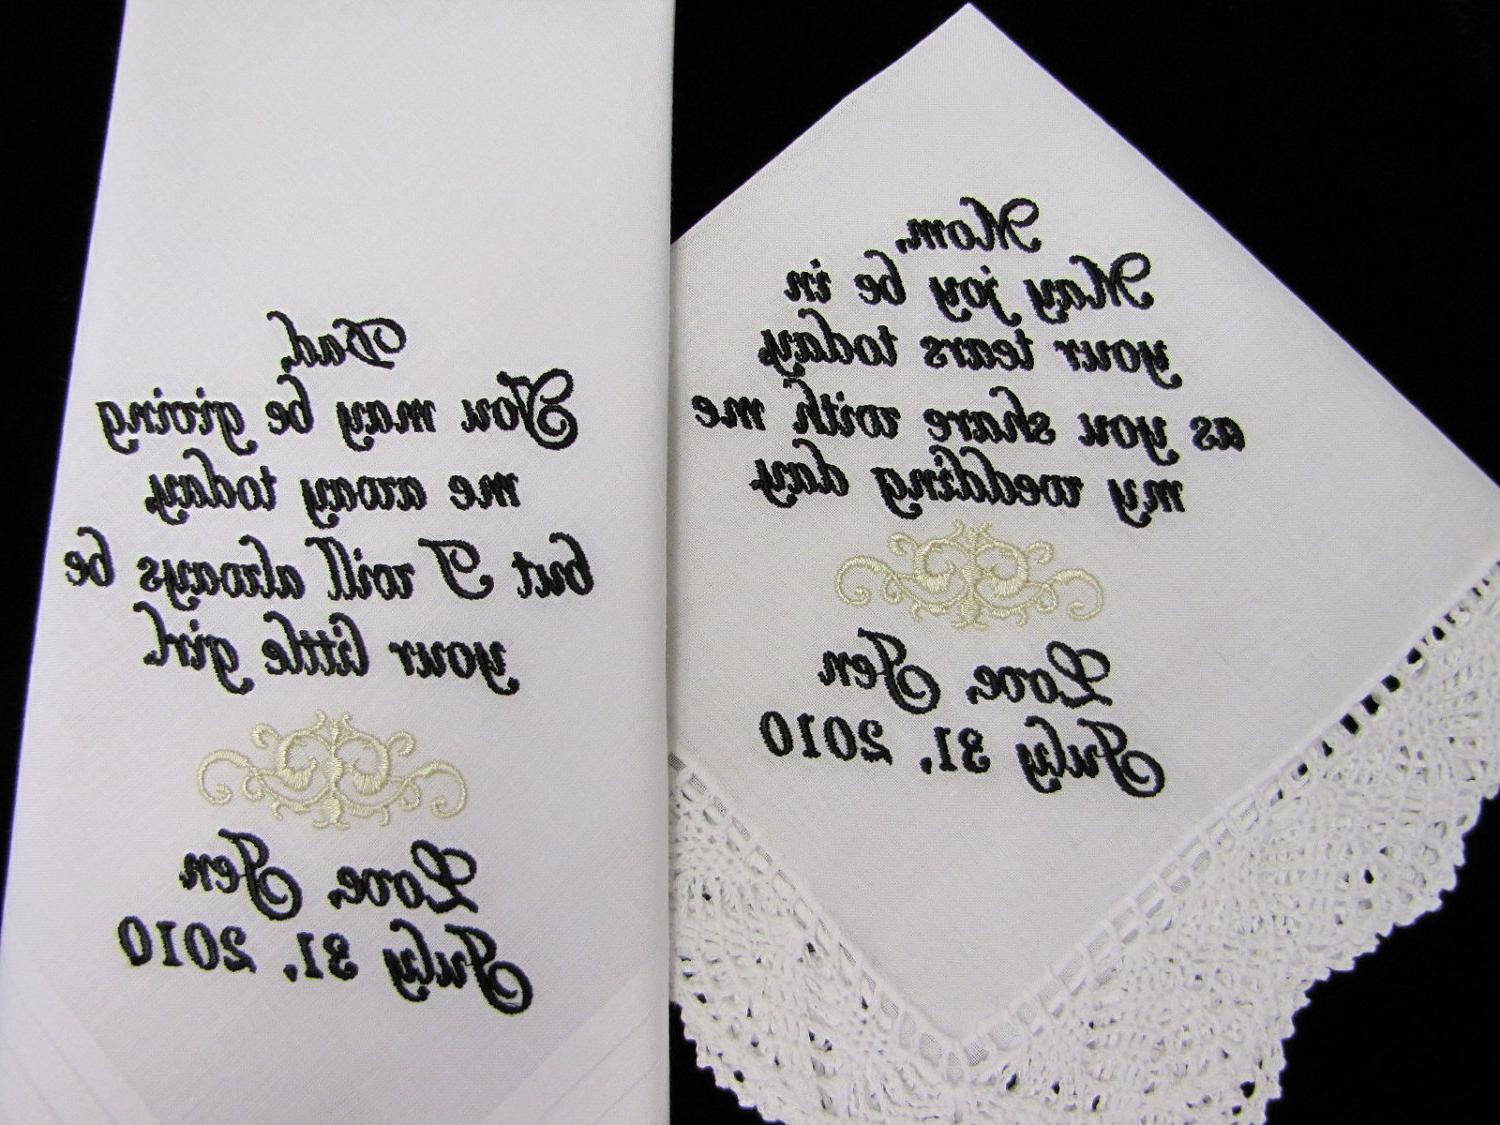 Dad,
You may be giving
me away today,
but I will always be
your little girl.
Love, Jen
July 31, 2010
Mom,
May joy be in
your tears today,
as you share with me
my wedding day.
Love, Jen
July 31, 2010